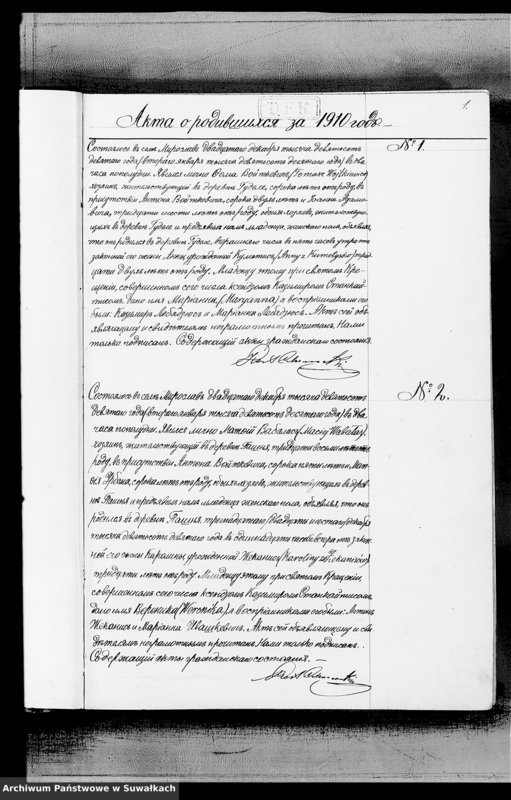 1.
Акта о родившихся за 1910 годъ
№ 1.
Состоялось въ селѣ Мирославѣ двадцатаго декабря тысяча девятьсотъ
девятаго года (втораго января тысяча девятьсотъ десятаго года) въ два
часа пополудни. Явился лично Ѳома Войткевичъ (Tomasz Wojtkiewicz)
хозяинъ, жительствующій въ деревнѣ сорока лѣтъ отъ роду, въ
присутствіи Антона Войткевича, сорока двухъ лѣтъ и
тридцати шести лѣтъ отъ роду, обоихъ хозяевъ, жительствую-
щихъ въ деревнѣ и предъявилъ намъ младенца женскаго пола, объявляя,
что онъ родился въ деревнѣ числа въ пять часовъ утра отъ
законной его жены Анны, урожденной (Anny z) три-
цати двухъ лѣтъ отъ роду. Младенцу этому при святомъ Кре-
щеніи, совершенномъ сего числа ксендзомъ Казимиромъ
дано имя Маріанна, (Maryanna) а воспріемниками его
были: Казимиръ и Маріанна Актъ сей объ-
являющему и свидѣтелямъ неграмотнымъ прочитанъ, Нами
только подписанъ. Содержащій акты гражданскаго состоянія.
№ 2.
Состоялось въ селѣ Мирославѣ двадцатаго декабря тысяча девятьсотъ
девятаго года (втораго января тысяча девятьсотъ десятаго года) въ два
часа пополудни. Явился лично Матвѣй Вабалась (Maciej Wabalas),
хозяинъ, жительствующій въ деревнѣ тридцати восьми лѣтъ отъ
роду, въ присутствіи Антона Войткевича, сорока пяти лѣтъ и Мат-
вѣя Урбана, сорока лѣтъ отъ роду, обоихъ хозяевъ, жительствующихъ въ дерев-
нѣ и предъявилъ намъ младенца женскаго пола, объявляя, что онъ
родился въ деревнѣ тринадцатаго (двадцать шестаго) декабря
тысяча девятьсотъ девятаго года въ одиннадцать часовъ вечера отъ закон-
ной его жены Каролины, урожденной (Karoliny z)
тридцати лѣтъ отъ роду. Младенцу этому при святомъ Крещеніи,
совершенномъ сего числа ксендзомъ Казимиромъ
дано имя Вероника (Weronika) а воспріемниками его были: Антонъ
и Маріанна Ивашкевичъ. Актъ сей объявляющему и сви-
дѣтелямъ неграмотнымъ прочитанъ, Нами только подписанъ.
Содержащій акты гражданскаго состоянія.
Archiwum Państwowe w Suwałkach